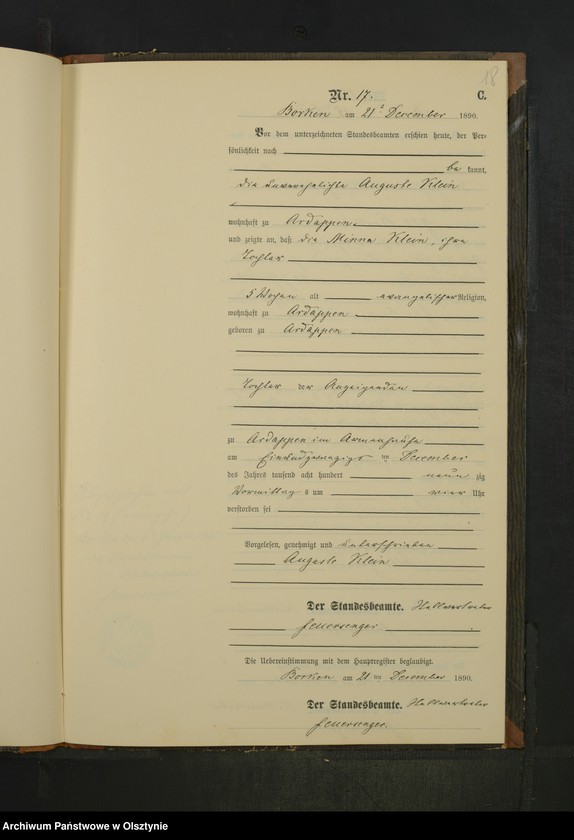 18
Nr. 17. C.
Borken am 21ten December 1890.
Vor dem unterzeichneten Standesbeamten erschien heute, der Per-
sönlichkeit nach
be kannt,
die unverehelichte Auguste Klein
wohnhaft zu Ardappen
und zeigte an, daß die Minna Klein, ihre
Tochter
5 Wochen alt evangelischer Religion,
wohnhaft zu Ardappen
geboren zu Ardappen
Tochter der Anzeigenden
zu Ardappen im Armenhause
am ten December
des Jahres tausend acht hundert neun zig
Vormittag s um vier Uhr
verstorben sei
Vorgelesen, genehmigt und unterschrieben
Auguste Klein
Der Standesbeamte.
Feuersenger
Die Uebereinstimmung mit dem Hauptregister beglaubigt.
Borken am 21 ten December 1890.
Der Standesbeamte.
Feuersenger.
Archiwum Państwowe w Olsztynie